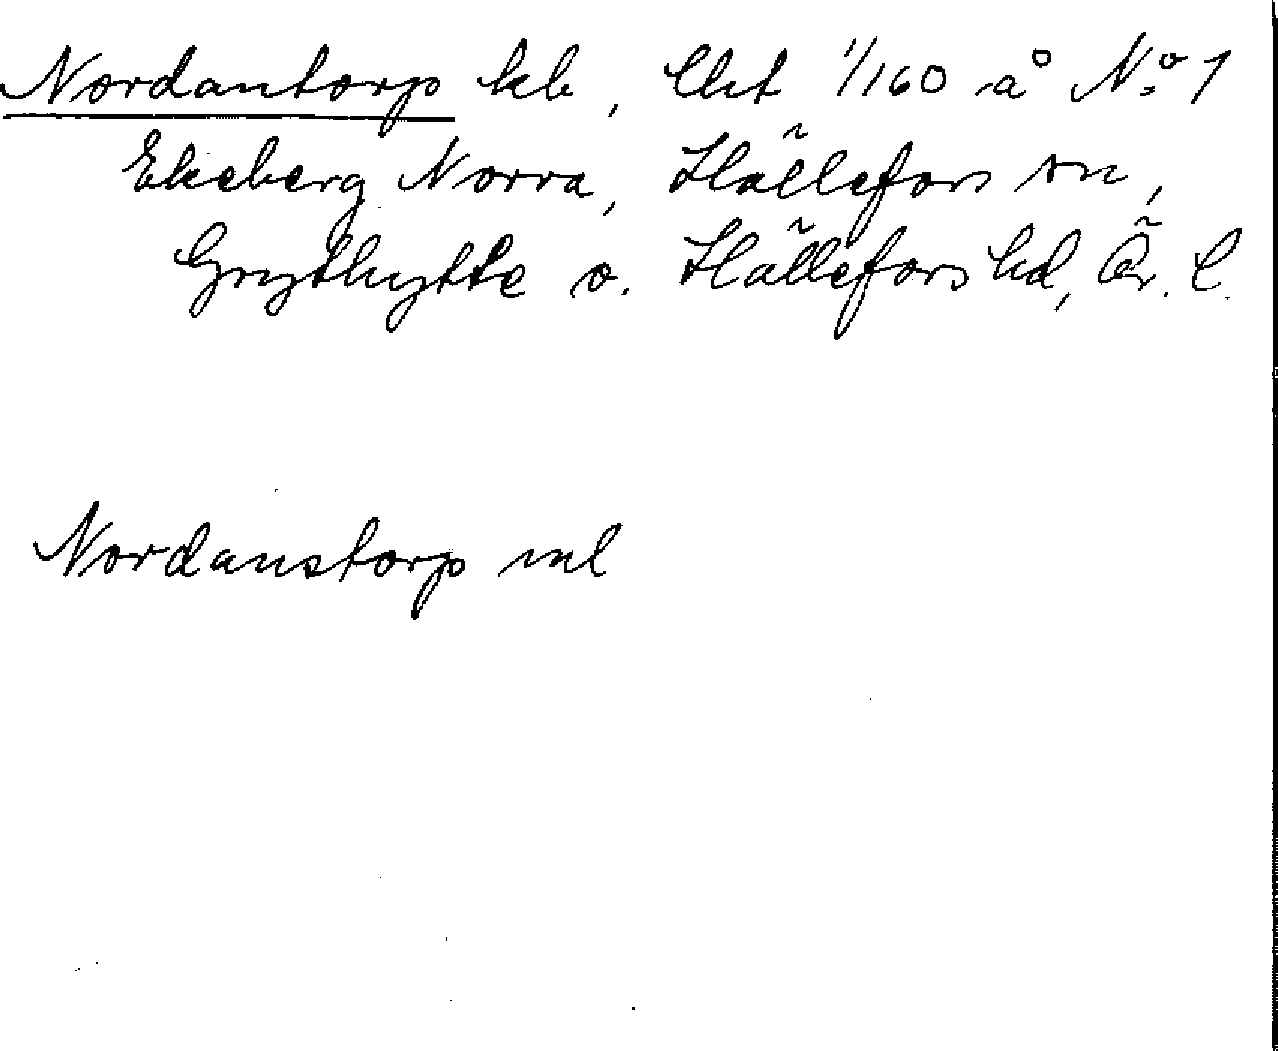 Nordantorp hb, Cht 1/160 å No 1
Ekeberg Norra, Hällefors sn,
Grythytte o. Hällefors hd, Ör. l.
Nordanstorp ml